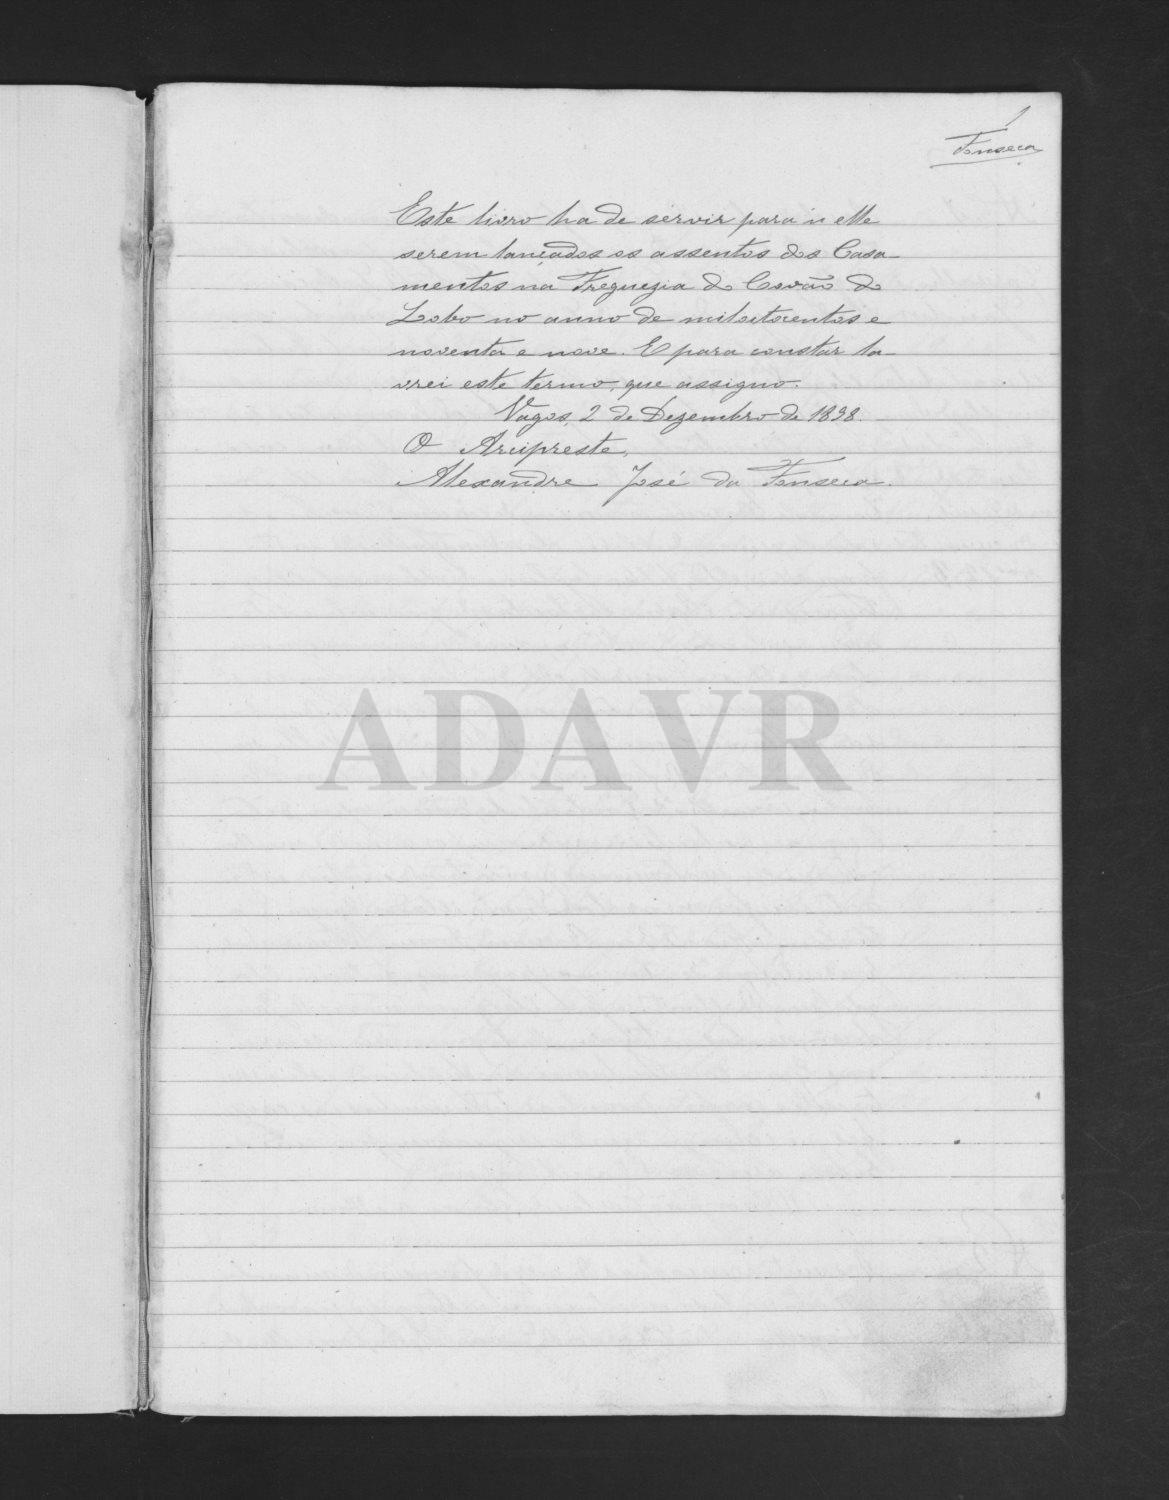 1
Fonseca
Este livro ha de servir para n'elle
serem lançados os assentos dos Casa-
mentos na Freguezia do Covão do
Lobo no anno de mil oitocentos e
noventa e nove. E para constar la-
vrei este termo, que assigno.
Vagos, 2 de Dezembro de 1898.
O Arcipreste,
Alexandre José da Fonseca.
ADAVR